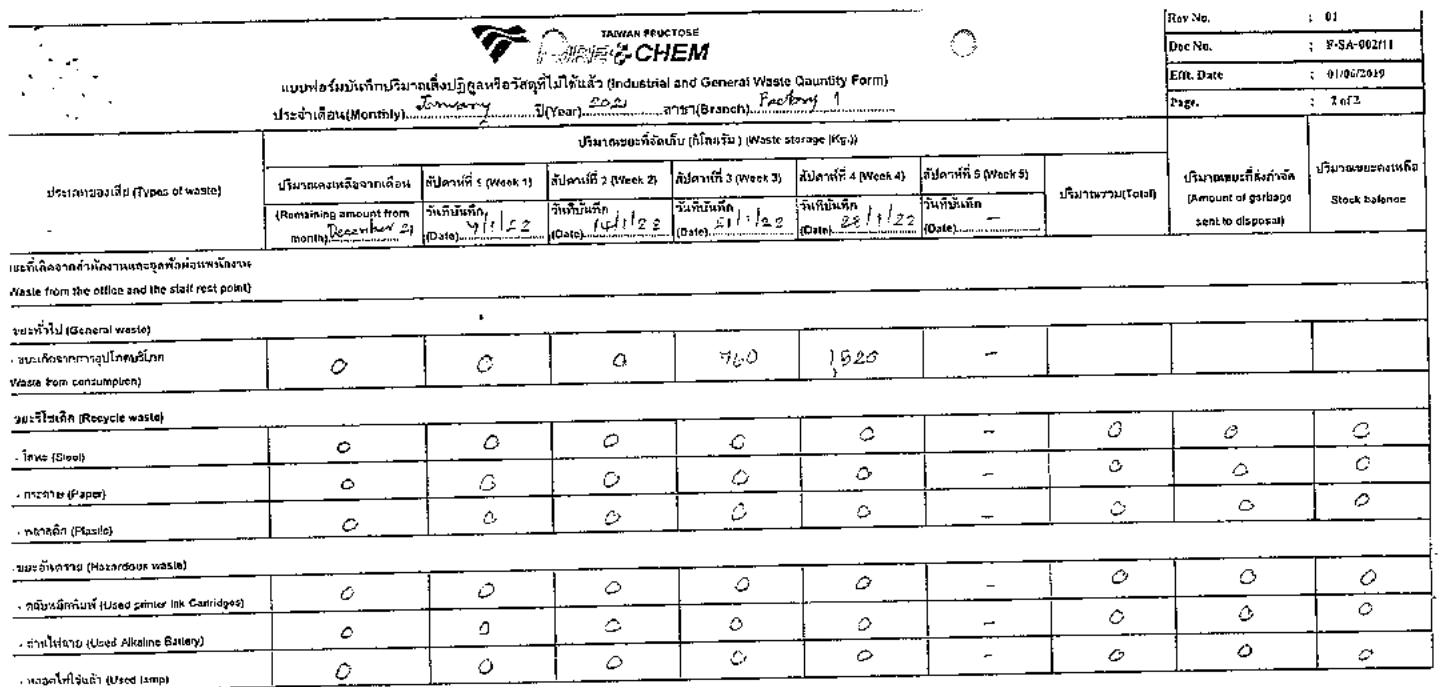 TAIWAN FRUCTOSE
CHEM
Rev No. : 01
Doc No. : F-SA-002/11
Efft. Date : 01/06/2019
Page. : 2 of 2
แบบฟอร์มบันทึกปริมาณสิ่งปฏิกูลหรือวัสดุที่ไม่ใช้แล้ว (Industrial and General Waste Qauntity Form)
ประจำเดือน(Monthly) January ปี(Year) 2021 สาขา(Branch) Factory 1
ประเภทของเสีย (Types of waste)
ปริมาณขยะที่จัดเก็บ (กิโลกรัม) (Waste storage (Kg.))
ปริมาณคงเหลือจากเดือน
(Remaining amount from month) December 21
สัปดาห์ที่ 1 (Week 1)
วันที่บันทึก (Date) 7/1/22
สัปดาห์ที่ 2 (Week 2)
วันที่บันทึก (Date) 14/1/22
สัปดาห์ที่ 3 (Week 3)
วันที่บันทึก (Date) 21/1/22
สัปดาห์ที่ 4 (Week 4)
วันที่บันทึก (Date) 28/1/22
สัปดาห์ที่ 5 (Week 5)
วันที่บันทึก (Date) -
ปริมาณรวม(Total)
ปริมาณขยะที่ส่งกำจัด
(Amount of garbage sent to disposal)
ปริมาณขยะคงเหลือ
Stock balance
ขยะที่เกิดจากสำนักงานและจุดพักผ่อนพนักงาน
Waste from the office and the staff rest point)
ขยะทั่วไป (General waste)
- ขยะเกิดจากการอุปโภคบริโภค 0 0 0 760 1,520 -
Waste from consumption)
ขยะรีไซเคิล (Recycle waste)
- โลหะ (Steel) 0 0 0 0 0 - 0 0 0
- กระดาษ (Paper) 0 0 0 0 0 - 0 0 0
- พลาสติก (Plastic) 0 0 0 0 0 - 0 0 0
ขยะอันตราย (Hazardous waste)
- ตลับหมึกพิมพ์ (Used printer Ink Cartridges) 0 0 0 0 0 - 0 0 0
- ถ่านไฟฉาย (Used Alkaline Battery) 0 0 0 0 0 - 0 0 0
- หลอดไฟใช้แล้ว (Used lamp) 0 0 0 0 0 - 0 0 0